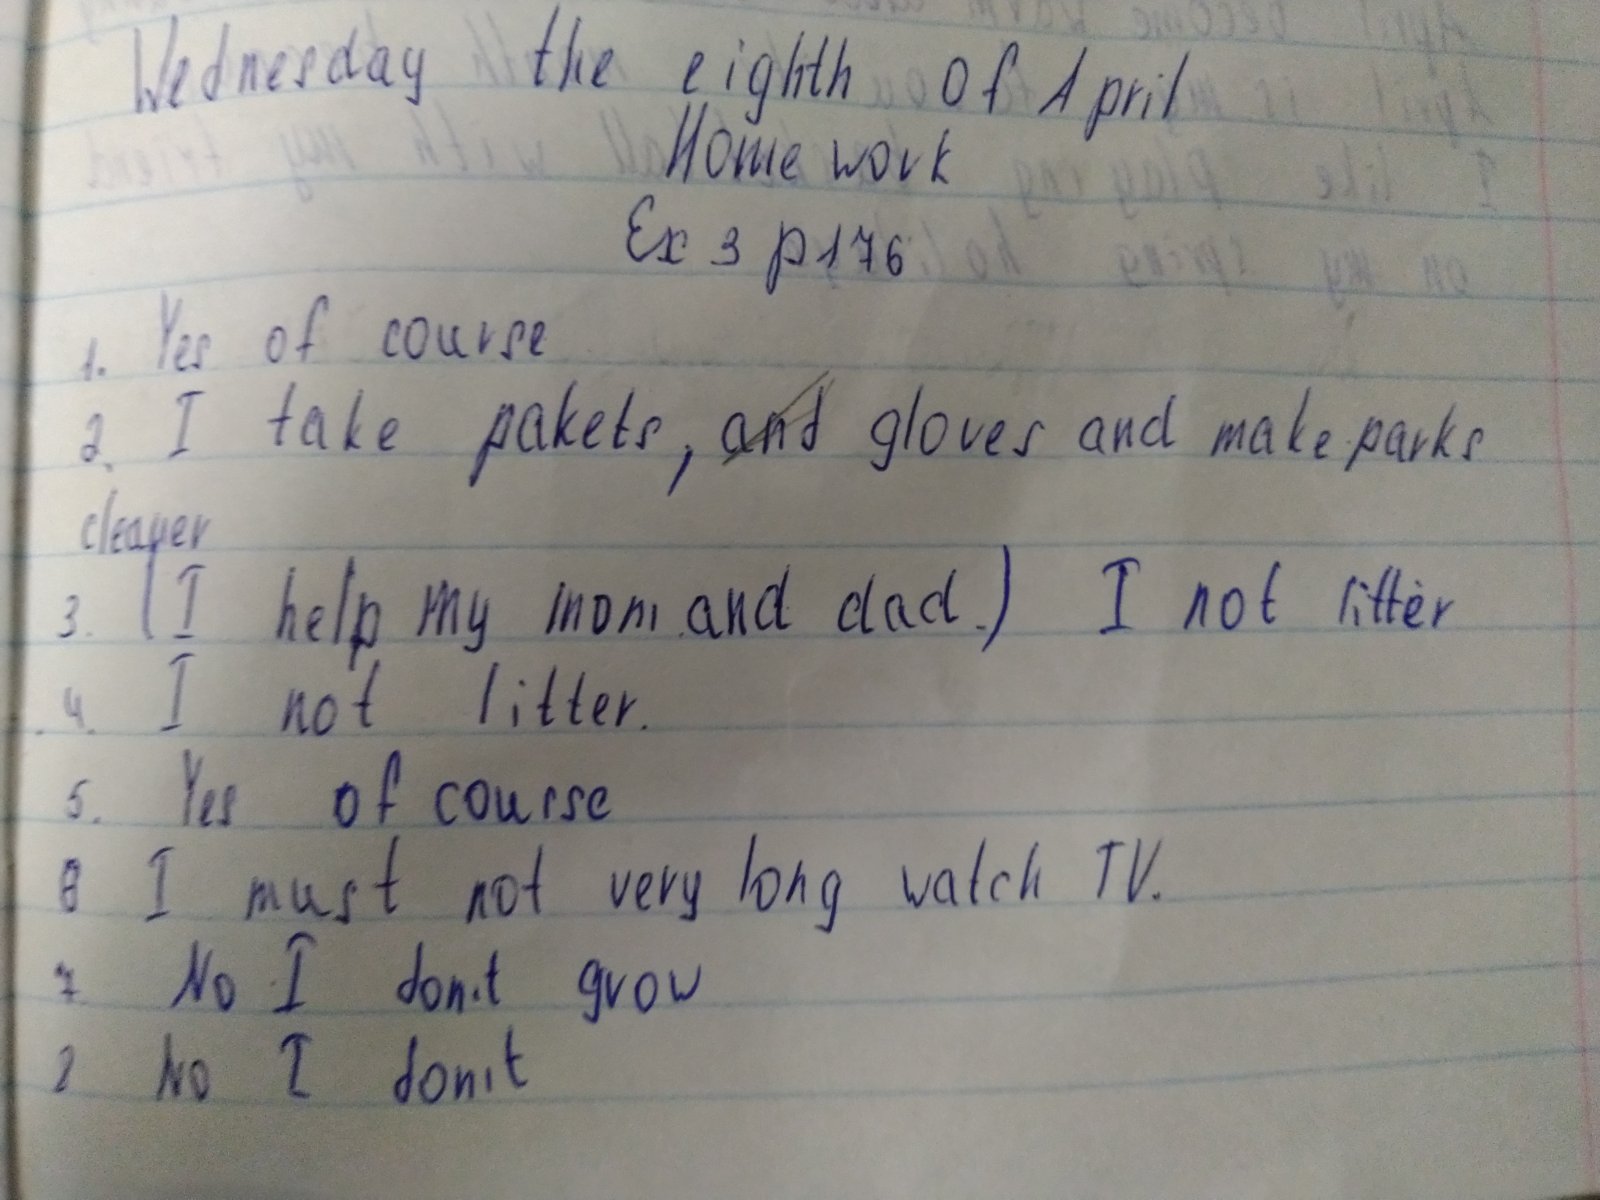 Wednesday the eighth of April
Home work
Ex 3 p 176
1. Yes of course
2. I take pakets, and gloves and make parks
cleaner
3. (I help my mom and dad.) I not litter
4. I not litter.
5. Yes of course
6 I must not very long watch TV.
7 No I don't grow
8 No I don't